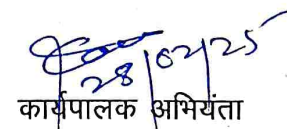 28/02/25
कार्यपालक अभियंता